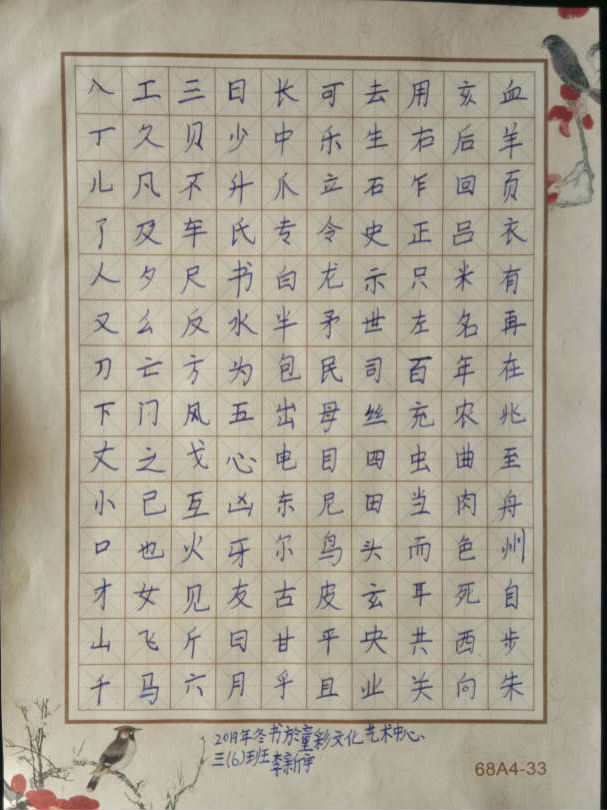 入工三日长可去用亥血
丁久贝少中乐生右后羊
儿凡不升爪立石乍回页
了及车氏专令史正吕衣
人夕尺书白龙示只米有
又么反水半矛世左名再
刀亡方为包民司百年在
下门风五出母丝充农兆
丈之戈心电目四虫曲至
小已互凶东尼田当肉舟
口也火牙尔鸟头而色州
才女见友古皮玄耳死自
山飞斤曰甘平央共西步
千马六月乎且业关向朱
2019年冬书於童彩文化艺术中心、
三(6)班李新宇
68A4-33